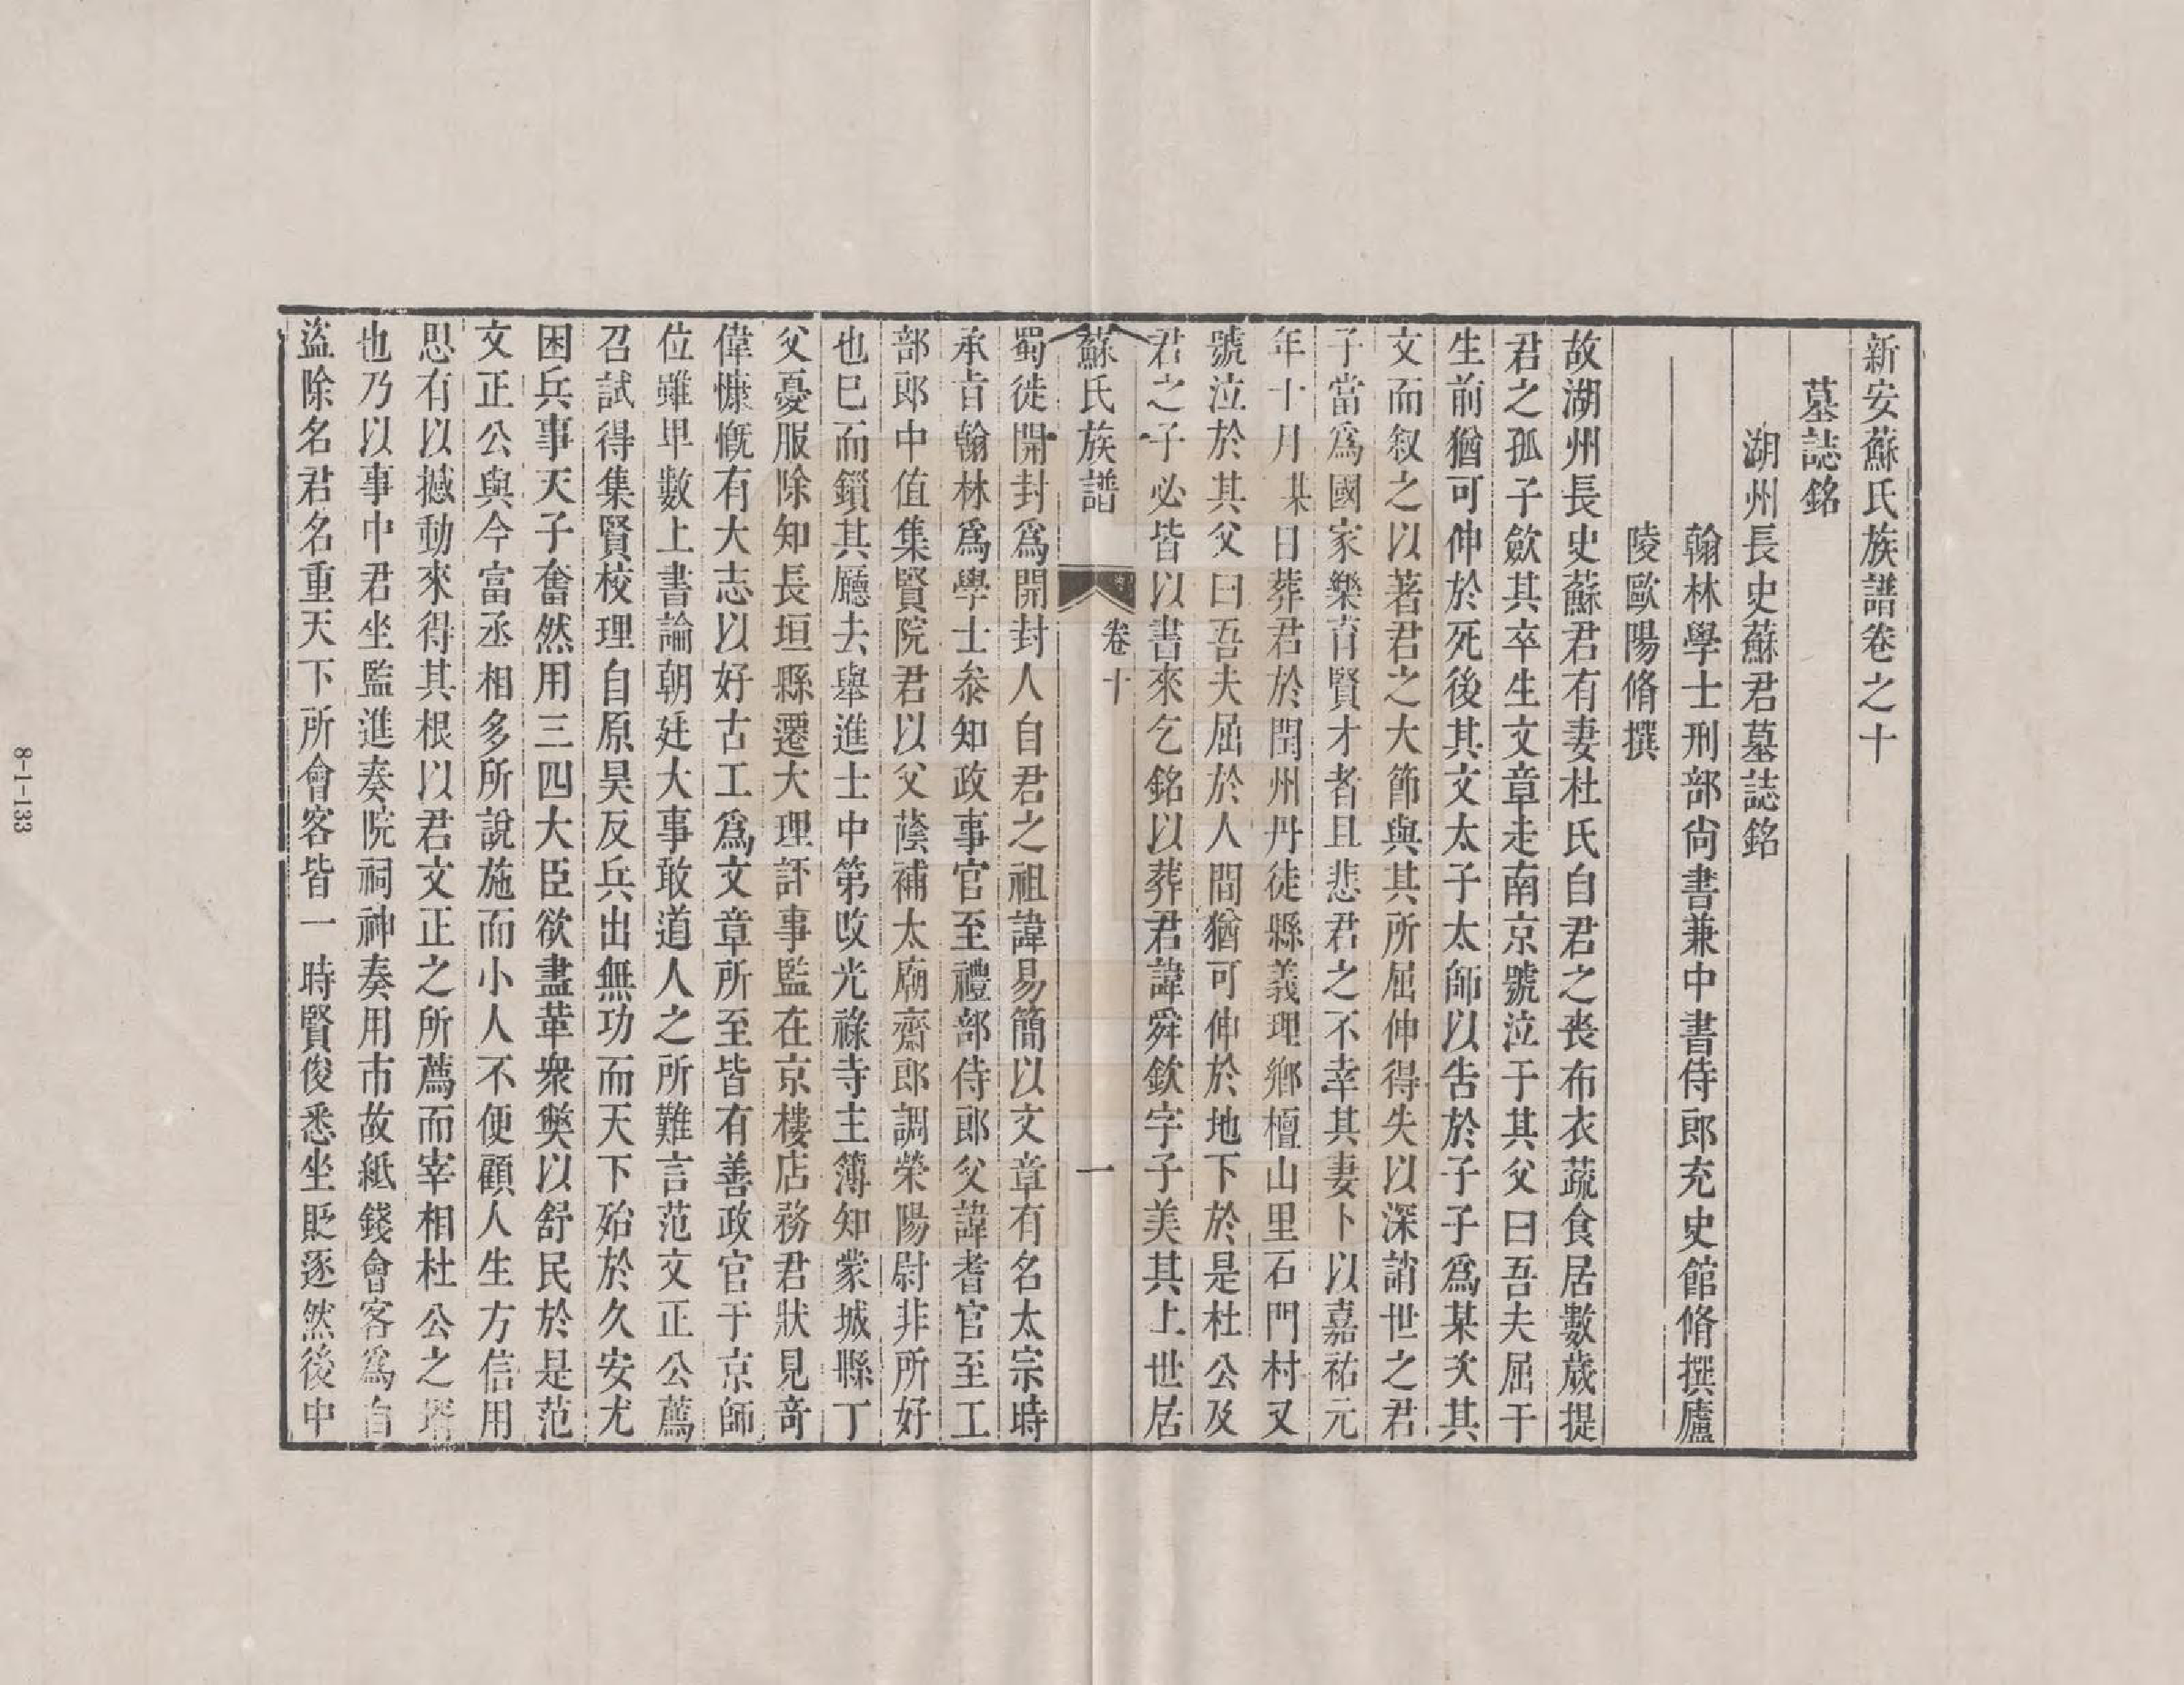 新安蘇氏族譜卷之十
墓誌銘
湖州長史蘇君墓誌銘
翰林學士刑部尙書兼中書侍郎充史館脩撰廬
陵歐陽脩撰
故湖州長史蘇君有妻杜氏自君之喪布衣蔬食居數歲提
君之孤子歛其卒生文章走南京號泣于其父曰吾夫屈于
生前猶可伸於死後其文太子太師以吿於子子爲某次其
文而叙之以著君之大節與其所屈伸得失以深誚世之君
子當爲國家樂育賢才者且悲君之不幸其妻卜以嘉祐元
年十月某日葬君於閏州丹徒縣義理鄉檀山里石門村又
號泣於其父曰吾夫屈於人間猶可伸於地下於是杜公及
君之子必皆以書來乞銘以葬君諱舜欽字子美其上世居
蘇氏族譜
卷十
一
蜀徙開封爲開封人自君之祖諱易簡以文章有名太宗時
承旨翰林爲學士叅知政事官至禮部侍郎父諱耆官至工
部郎中值集賢院君以父蔭補太廟齋郎調榮陽尉非所好
也巳而鎖其廳去舉進士中第改光祿寺主簿知蒙城縣丁
父憂服除知長垣縣遷大理評事監在京樓店務君狀見奇
偉慷慨有大志以好古工爲文章所至皆有善政官于京師
位雖卑數上書論朝廷大事敢道人之所難言范文正公薦
召試得集賢校理自原昊反兵出無功而天下殆於久安尤
困兵事天子奮然用三四大臣欲盡革衆獘以舒民於是范
文正公與今富丞相多所說施而小人不便顧人生方信用
思有以撼動來得其根以君文正之所薦而宰相杜公之壻
也乃以事中君坐監進奏院祠神奏用市故紙錢會客爲自
盜除名君名重天下所會客皆一時賢俊悉坐貶逐然後中
8-1-133